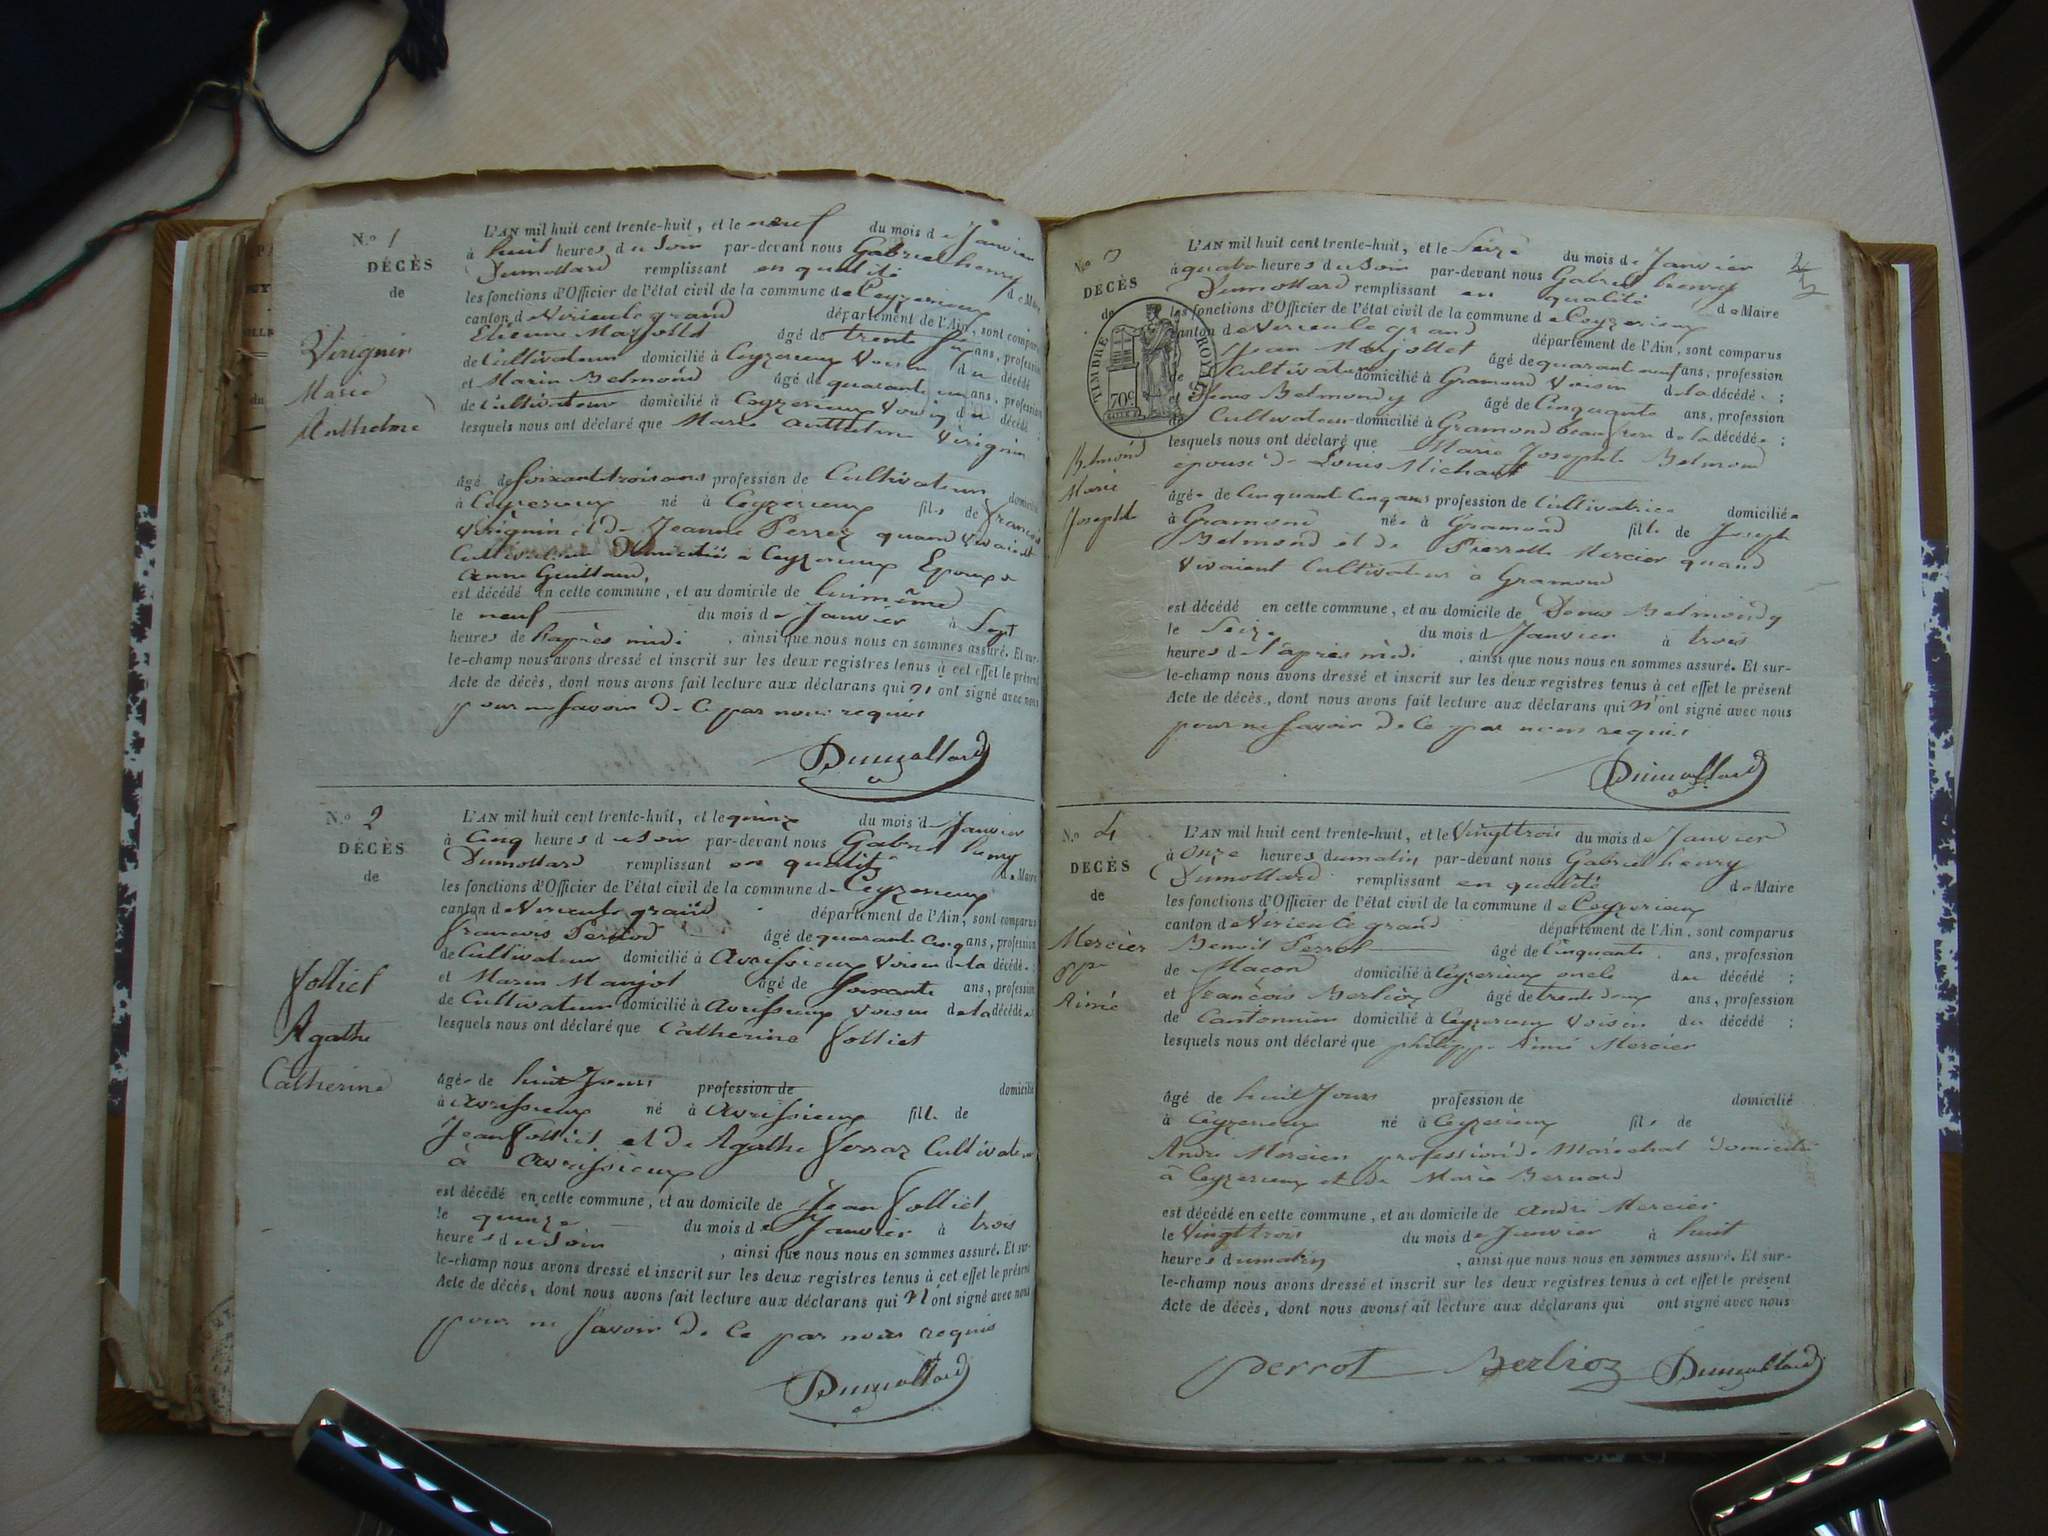 N.º 1
DÉCÈS
de
Virignin
Marie
Anthelme
L'AN mil huit cent trente-huit, et le neuf du mois de Janvier
à huit heures du Soir par-devant nous Gabriel henry
Dumollard remplissant en qualité de Maire
les fonctions d'Officier de l'état civil de la commune de Ceyzerieux
canton de Virieu le grand département de l'Ain, sont comparus
Etienne Marjollet âgé de trente ans, profession
de Cultivateur domicilié à Ceyzerieux Voisin du décédé
et Marin Belmond âgé de quarante un ans, profession
de Cultivateur domicilié à Ceyzerieux Voisin du décédé
lesquels nous ont déclaré que Marie Anthelme Virignin
âgé de Soixante trois ans profession de Cultivateur domicilié
à Ceyzerieux né à Ceyzerieux fils de François
Virignin et de Jeanne Perret quand Vivaient
Cultivateurs Domiciliés à Ceyzerieux Epoux
Anne Guilland,
est décédé en cette commune, et au domicile de luimême
le neuf du mois de Janvier à Sept
heures de l'après midi, ainsi que nous nous en sommes assuré. Et sur-
le-champ nous avons dressé et inscrit sur les deux registres tenus à cet effet le présent
Acte de décès, dont nous avons fait lecture aux déclarans qui n'ont signé avec nous
pour ne Savoir de Ce par nous requis
Dumollard
N.º 2
DÉCÈS
de
Volliet
Agathe
Catherine
L'AN mil huit cent trente-huit, et le quinze du mois de Janvier
à Cinq heures du Soir par-devant nous Gabriel henry
Dumollard remplissant en qualité de Maire
les fonctions d'Officier de l'état civil de la commune de Ceyzerieux
canton de Virieu le grand département de l'Ain, sont comparus
François Pernod âgé de quarante Cinq ans, profession
de Cultivateur domicilié à Avrissieux Voisin de la décédée;
et Marin Manjot âgé de Soixante ans, profession
de Cultivateur domicilié à Avrissieux Voisin de la décédée
lesquels nous ont déclaré que Catherine Volliet
âgée de huit Jours profession de domicilié
à Avrissieux né à Avrissieux fille de
Jean Volliet et de Agathe Verraz Cultivateurs
à Avrissieux
est décédé en cette commune, et au domicile de Jean Volliet
le quinze du mois de Janvier à trois
heures du Soir, ainsi que nous nous en sommes assuré. Et sur-
le-champ nous avons dressé et inscrit sur les deux registres tenus à cet effet le présent
Acte de décès, dont nous avons fait lecture aux déclarans qui n'ont signé avec nous
pour ne Savoir de Ce par nous requis
Dumollard
N.º 3
DÉCÈS
de
TIMBRE ROYAL
70c
Belmond
Marie
Josephte
L'AN mil huit cent trente-huit, et le Seize du mois de Janvier
à quatre heures du Soir par-devant nous Gabriel henry
Dumollard remplissant en qualité de Maire
les fonctions d'Officier de l'état civil de la commune de Ceyzerieux
canton de Virieu le grand département de l'Ain, sont comparus
Jean Marjollet âgé de quarante neuf ans, profession
de Cultivateur domicilié à Gramond Voisin de la décédée;
et Denis Belmondy âgé de Cinquante ans, profession
de Cultivateur domicilié à Gramond beau frere de la décédée;
lesquels nous ont déclaré que Marie Josephte Belmond
épouse de Louis Michaud
âgée de Cinquante Cinq ans profession de Cultivatrice domiciliée
à Gramond née à Gramond fille de Joseph
Belmond et de Pierrette Mercier quand
Vivaient Cultivateurs à Gramond
est décédé en cette commune, et au domicile de Denis Belmondy
le Seize du mois de Janvier à trois
heures de l'après midi, ainsi que nous nous en sommes assuré. Et sur-
le-champ nous avons dressé et inscrit sur les deux registres tenus à cet effet le présent
Acte de décès, dont nous avons fait lecture aux déclarans qui n'ont signé avec nous
pour ne Savoir de Ce par nous requis
Dumollard
N.º 4
DÉCÈS
de
Mercier
ppe
Aimé
L'AN mil huit cent trente-huit, et le Vingt trois du mois de Janvier
à Onze heures du matin par-devant nous Gabriel henry
Dumollard remplissant en qualité de Maire
les fonctions d'Officier de l'état civil de la commune de Ceyzerieux
canton de Virieu le grand département de l'Ain, sont comparus
Benoit Perrot âgé de Cinquante ans, profession
de Maçon domicilié à Ceyzerieux oncle du décédé;
et François Berlioz âgé de trente deux ans, profession
de Cantonnier domicilié à Ceyzerieux Voisin du décédé;
lesquels nous ont déclaré que philippe Aimé Mercier
âgé de huit Jours profession de domicilié
à Ceyzerieux né à Ceyzerieux fils de
André Mercier profession de Maréchal Domicilié
à Ceyzerieux et de Marie Bernard
est décédé en cette commune, et au domicile de André Mercier
le Vingt trois du mois de Janvier à huit
heures du matin, ainsi que nous nous en sommes assuré. Et sur-
le-champ nous avons dressé et inscrit sur les deux registres tenus à cet effet le présent
Acte de décès, dont nous avons fait lecture aux déclarans qui ont signé avec nous
perrot Berlioz Dumollard